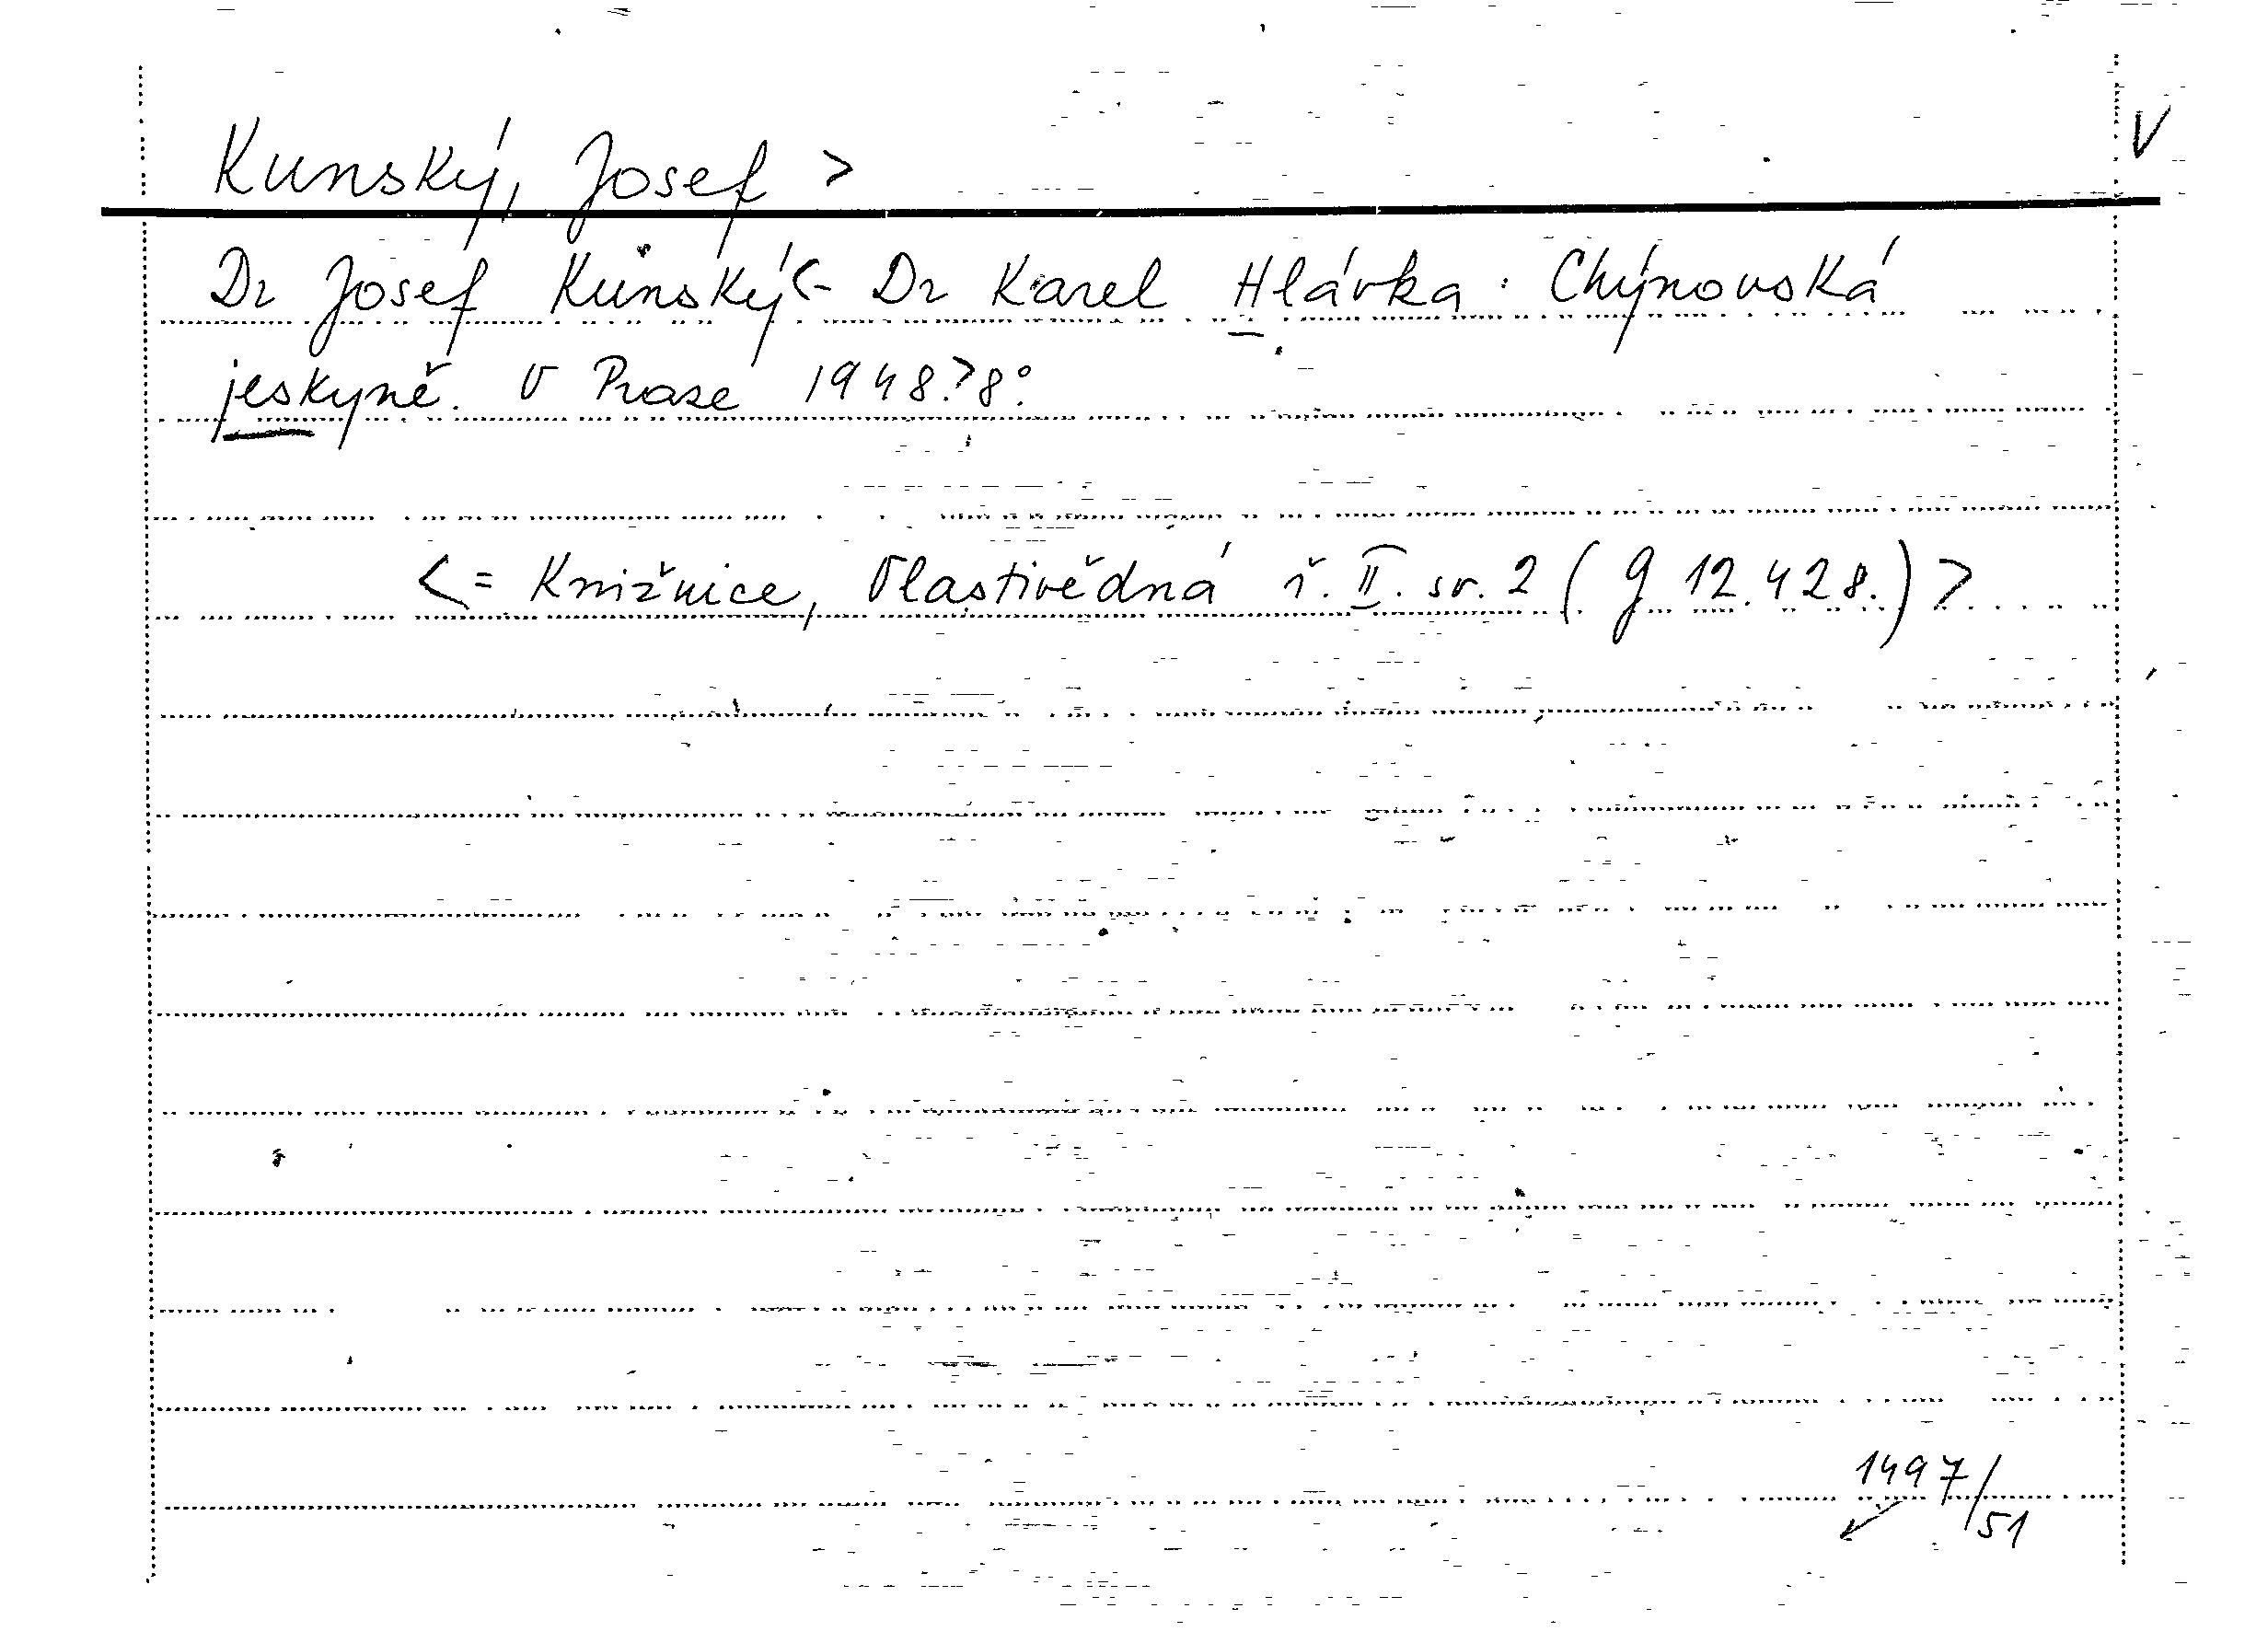 V
Kunský, Josef >
Dr Josef Kunský <- Dr Karel Hlávka: Chýnovská
jeskyně. V Praze 1948.> 8°.
<= Knižnice, Vlastivědná ř. II. sv. 2 (g 12.428.) >
1497/51